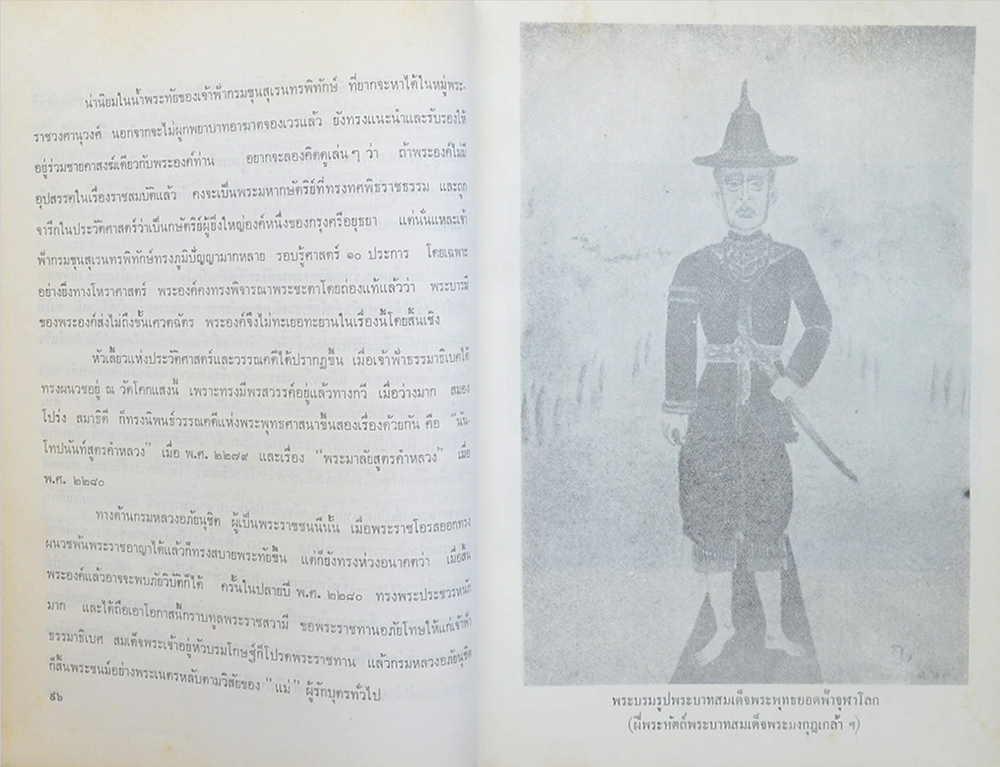 น่านิยมในน้ำพระทัยของเจ้าฟ้ากรมขุนสุเรนทรพิทักษ์ ที่ยากจะหาได้ในหมู่พระ-
ราชวงศานุวงศ์ นอกจากจะไม่ผูกพยาบาทอาฆาตจองเวรแล้ว ยังทรงแนะนำและรับรองให้
อยู่ร่วมชายคาสงฆ์เดียวกับพระองค์ท่าน อยากจะลองคิดดูเล่น ๆ ว่า ถ้าพระองค์ไม่มี
อุปสรรคในเรื่องราชสมบัติแล้ว คงจะเป็นพระมหากษัตริย์ที่ทรงทศพิธราชธรรม และถูก
จารึกในประวัติศาสตร์ว่าเป็นกษัตริย์ผู้ยิ่งใหญ่องค์หนึ่งของกรุงศรีอยุธยา แต่นั่นแหละเจ้า
ฟ้ากรมขุนสุเรนทรพิทักษ์ทรงภูมิปัญญามากหลาย รอบรู้ศาสตร์ ๑๐ ประการ โดยเฉพาะ
อย่างยิ่งทางโหราศาสตร์ พระองค์คงทรงพิจารณาพระชะตาโดยถ่องแท้แล้วว่า พระบารมี
ของพระองค์ส่งไม่ถึงขั้นเศวตฉัตร พระองค์จึงไม่ทะเยอทะยานในเรื่องนี้โดยสิ้นเชิง
หัวเลี้ยวแห่งประวัติศาสตร์และวรรณคดีได้ปรากฏขึ้น เมื่อเจ้าฟ้าธรรมาธิเบศได้
ทรงผนวชอยู่ ณ วัดโคกแสงนี้ เพราะทรงมีพรสวรรค์อยู่แล้วทางกวี เมื่อว่างมาก สมอง
โปร่ง สมาธิดี ก็ทรงนิพนธ์วรรณคดีแห่งพระพุทธศาสนาขึ้นสองเรื่องด้วยกัน คือ “นัน-
โทปนันท์สูตรคำหลวง” เมื่อ พ.ศ. ๒๒๗๙ และเรื่อง “พระมาลัยสูตรคำหลวง” เมื่อ
พ.ศ. ๒๒๘๐
ทางด้านกรมหลวงอภัยนุชิต ผู้เป็นพระราชชนนีนั้น เมื่อพระราชโอรสออกทรง
ผนวชพ้นพระราชอาญาได้แล้วก็ทรงสบายพระทัยขึ้น แต่ก็ยังทรงห่วงอนาคตว่า เมื่อสิ้น
พระองค์แล้วอาจจะพบภัยวิบัติก็ได้ ครั้นในปลายปี พ.ศ. ๒๒๘๐ ทรงพระประชวรหนัก
มาก และได้ถือเอาโอกาสนี้กราบทูลพระราชสวามี ขอพระราชทานอภัยโทษให้แก่เจ้าฟ้า
ธรรมาธิเบศ สมเด็จพระเจ้าอยู่หัวบรมโกษฐ์ก็โปรดพระราชทาน แล้วกรมหลวงอภัยนุชิต
ก็สิ้นพระชนม์อย่างพระเนตรหลับตามวิสัยของ “แม่” ผู้รักบุตรทั่วไป
๕๖
พระบรมรูปพระบาทสมเด็จพระพุทธยอดฟ้าจุฬาโลก
(ฝีพระหัตถ์พระบาทสมเด็จพระมงกุฎเกล้า ฯ)